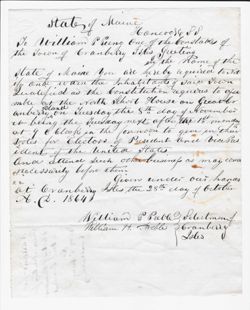 State of Maine
Hancock SS
To William P Preng One of the Constables
of the Town of Cranberry Isles Greeting
In the Name of the
State of Maine You are hereby required to notify
and warn the inhabitants of said Town
qualified as the Constitution requires to assemble
at the North School House on Great
Cranberry Island on Tuesday the 8th day of November
it being the Tuesday next after the 1st monday
at 9 O Clock in the forenoon to give in their
Votes for Electors of President and Vice President
of the United States
And attend such other business as may come
necessarily before them
Given under our hands
at Cranberry Isles the 28th day of October
A. D. 1864
William P Preble Selectmen of
William H. Preble Cranberry
Isles